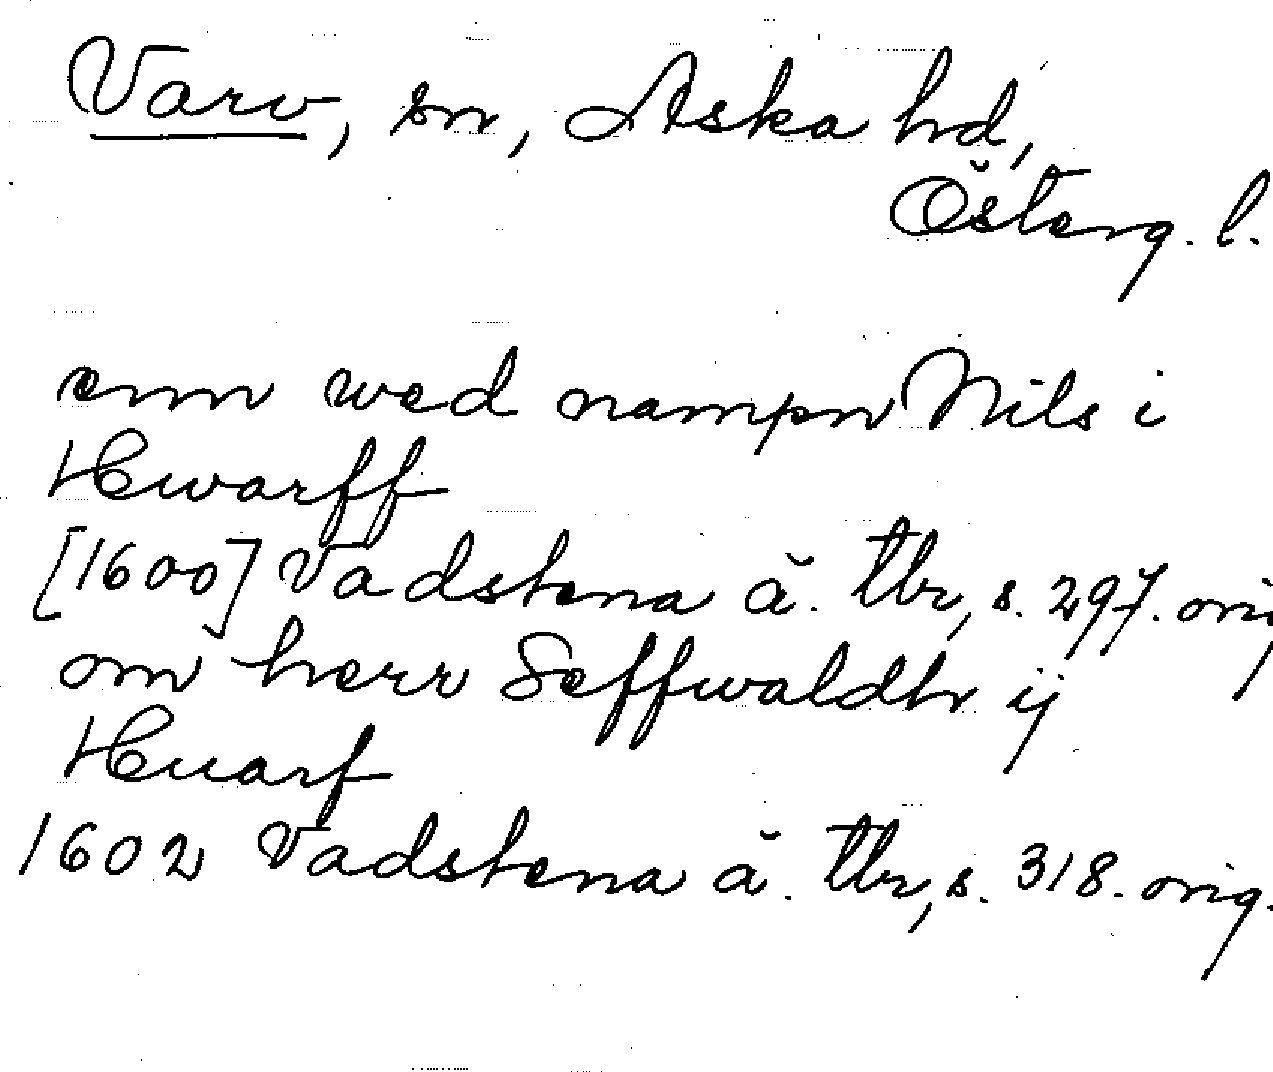 Varv, sn, Aska hd,
Österg. l.
enn wed nampn Nils i
Hwarff
[1600] Vadstena ä. tbr, s. 297. orig
om herr Seffwaldh ij
Huarf
1602 Vadstena ä. tbr, s. 318. orig.